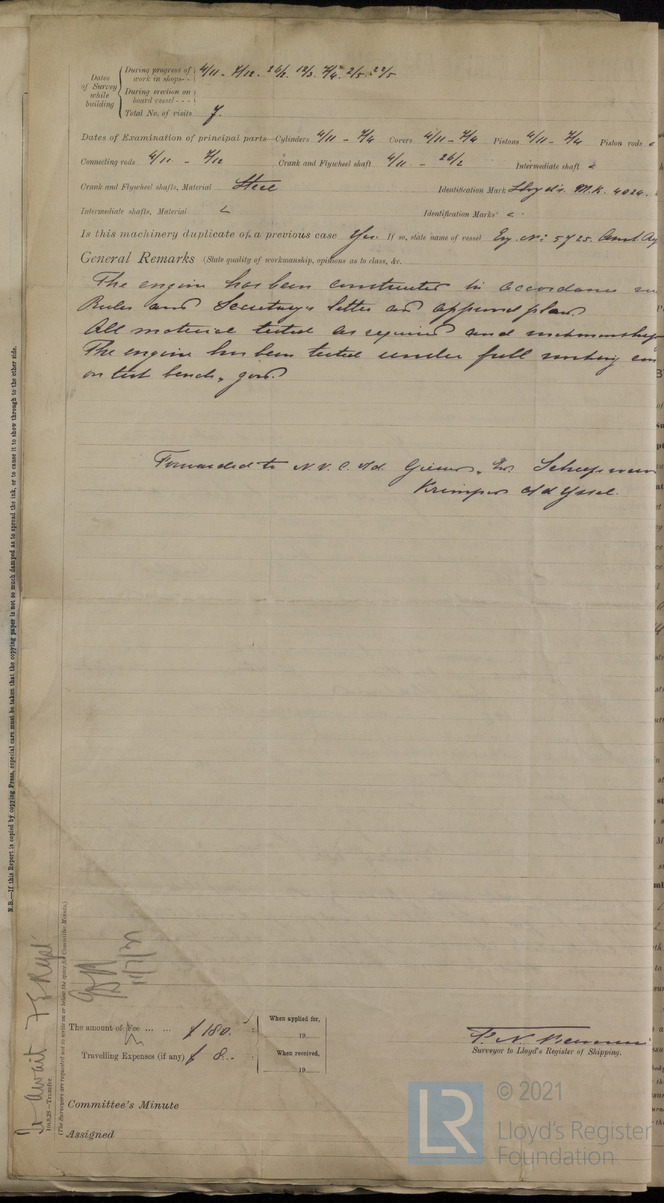 Dates of Survey while building
During progress of work in shops - - 4/11 - 7/12 - 26/2 12/3 7/4 2/5 22/5
During erection on board vessel - - -
Total No. of visits 7.
Dates of Examination of principal parts—Cylinders 4/11 - 7/4 Covers 4/11 - 7/4 Pistons 4/11 - 7/4 Piston rods
Connecting rods 4/11 - 7/12 Crank and Flywheel shaft 4/11 - 26/2 Intermediate shaft
Crank and Flywheel shafts, Material Steel Identification Mark Lloyd's M.K. 4024.
Intermediate shafts, Material Identification Marks
Is this machinery duplicate of a previous case Yes. If so, state name of vessel Eng. No: 5725.
General Remarks (State quality of workmanship, opinions as to class, &c.
The engine has been constructed in accordance
Rules and Secretary's letter and approved plan
All material tested as required and workmanship
The engine has been tested under full working
on test bench, good.
Forwarded to N.V. C. v/d Giessen
Krimpen a/d Yssel.
N.B.—If this Report is copied by copying Press, especial care must be taken that the copying paper is not so much damped as to spread the ink, or to cause it to show through to the other side.
(The Surveyors are requested not to write on or below the space for Committee's Minute.)
To await F E Rept
The amount of Fee ... ... £ 180. : When applied for,
19
Travelling Expenses (if any) £ 8.. : When received,
19
Surveyor to Lloyd's Register of Shipping.
Committee's Minute
Assigned
LR
© 2021
Lloyd's Register
Foundation